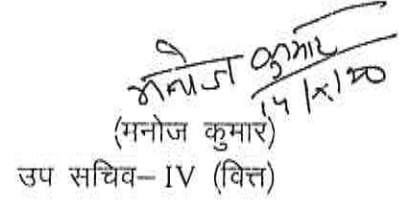 मनोज कुमार
14/x/20
(मनोज कुमार)
उप सचिव– IV (वित्त)